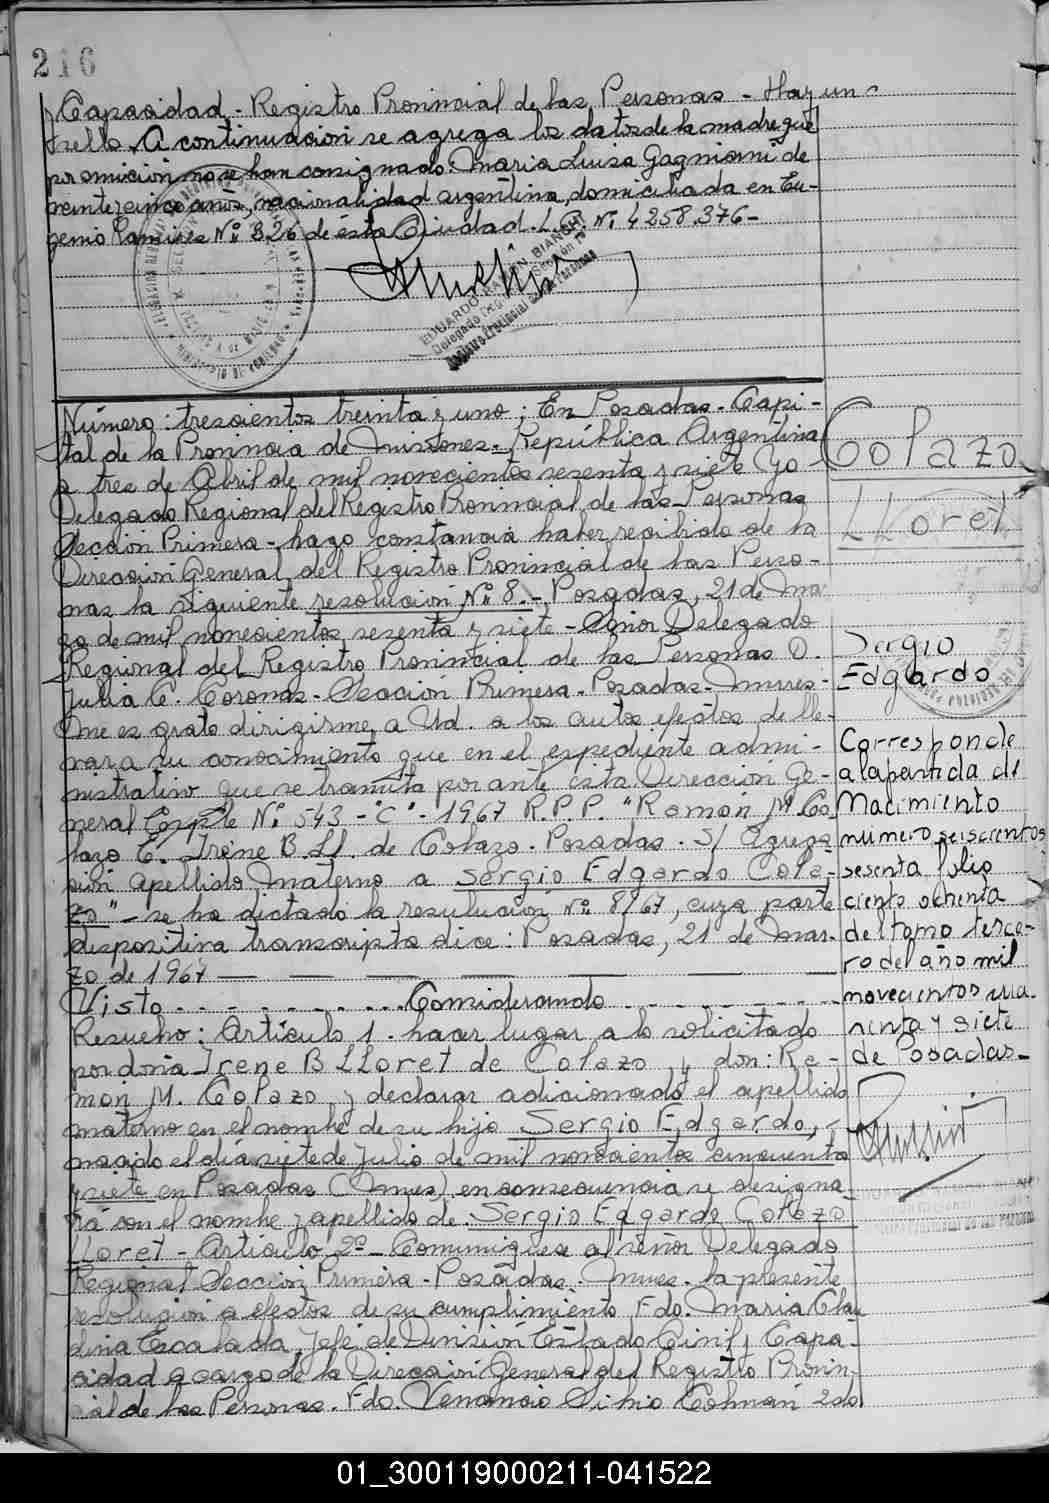 216
y Capacidad - Registro Provincial de las Personas - Hay un
sello. A continuacion se agrega los datos de la madre que
por omicion no se han consignado. Maria Luisa Gagnioni de
veinte cinco anos, nacionalidad argentina, domiciliada en Eu-
genio Ramires Nº 826 de ésta Ciudad. L.C. Nº 4258.376-
EDUARDO RAMON BIANCHI
Delegado Seccion 1ª
Registro Provincial de las Personas
Número: trescientos treinta y uno: En Posadas - Capi-
tal de la Provincia de Misiones - República Argentina
a tres de Abril de mil novecientos sesenta y siete Yo
Delegado Regional del Registro Provincial de las Personas
Sección Primera - hago constancia haber recibido de la
Dirección General del Registro Provincial de las Perso-
nas la siguiente resolucion Nº 8. - Posadas, 21 de Ma
zo de mil novecientos sesenta y siete - Señor Delegado
Regional del Registro Provincial de las Personas D.
Julia C. Coronas - Sección Primera - Posadas - Misnes -
Me es grato dirigirme a Ud. a los autos efectos de lle-
var a su conocimiento que en el expediente admi-
nistrativo que se tramita por ante ésta Dirección Ge-
neral Expte Nº 543 - "C" - 1967 R.P.P. "Ramon M. Co-
lazo E. Irene B. Ll. de Colazo - Posadas - S/ Agrega
cion apellido materno a Sergio Edgardo Cola-
zo" - se ha dictado la resulucion Nº 8/67, cuya parte
dispositiva transcripta dice: Posadas, 21 de Mar-
zo de 1967
Visto - - - - - - - Considerando - - - - - - -
Resuelvo: Artículo 1. hacer lugar a lo solicitado
por doña Irene B LLoret de Colazo y don: Ra-
mon M. Colazo y declarar adicionado el apellido
materno en el nombre de su hijo Sergio Edgardo,
nacido el dia siete de Julio de mil novecientos cincuenta
y siete en Posadas (Mnes) en consecuencia se designa
rá con el nombre y apellido de Sergio Edgardo Colazo
LLoret - Artículo 2º - Comuniquese al señor Delegado
Regional Sección Primera - Posadas - Mnes. la presente
resolución a efectos de su cumplimiento Fdo. Maria Clau
dina Escalada, Jefe de División Estado Civil y Capa-
cidad a cargo de la Dirección General del Registro Provin-
cial de las Personas. Fdo. Venancio Silvio Colman 2do
Colazo
LLoret
Sergio
Edgardo
Corresponde
a la partida de
Nacimiento
número seiscientos
sesenta folio
ciento ochenta
del tomo terce-
ro del año mil
novecientos cua-
renta y siete
de Posadas -
01_300119000211-041522